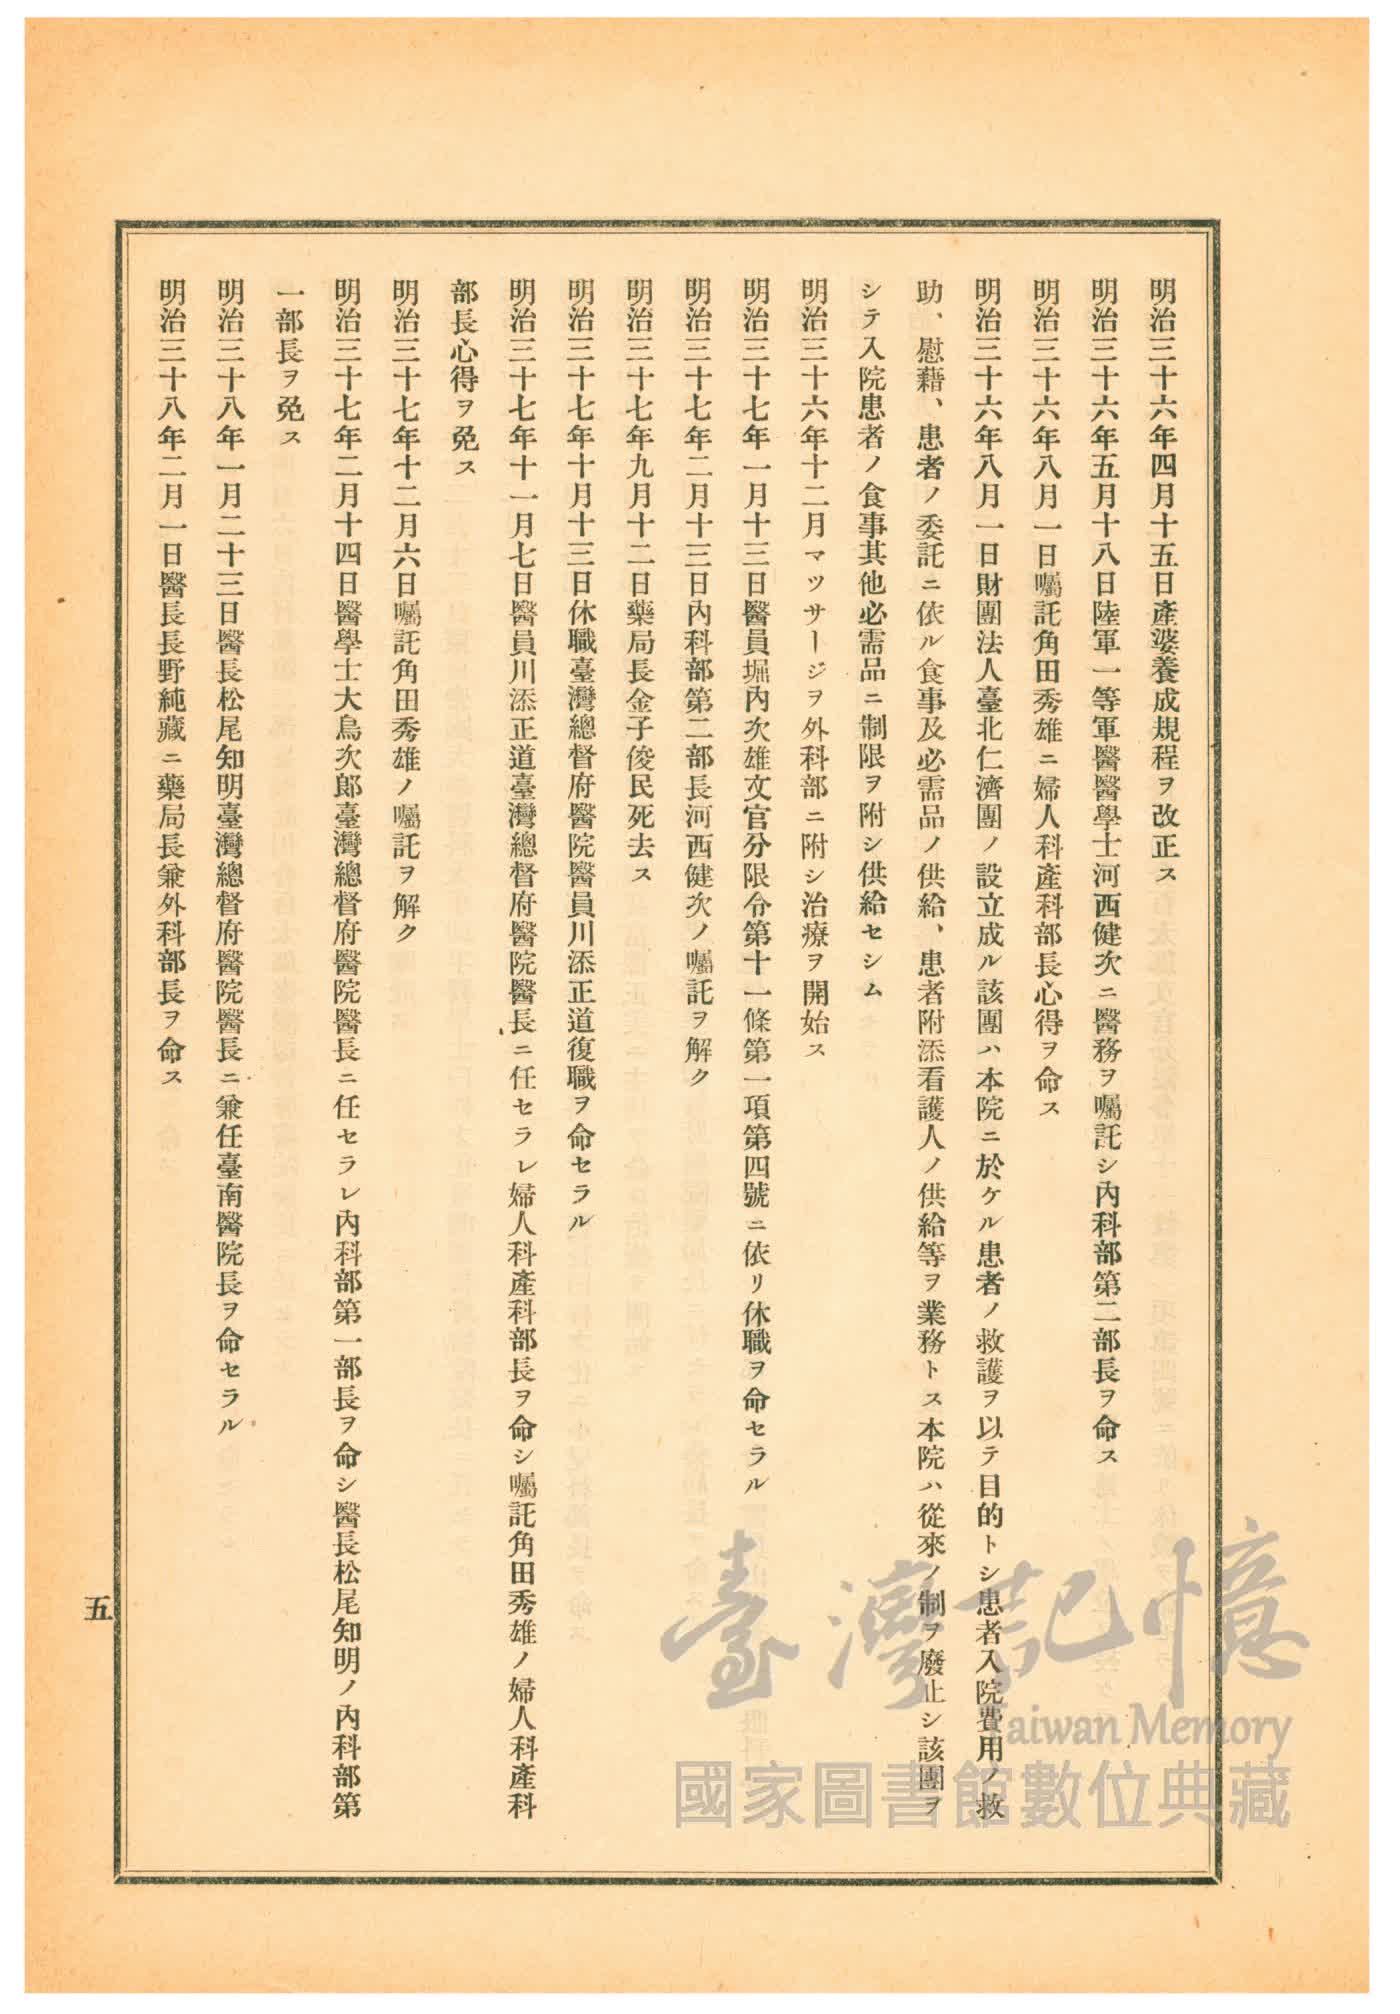 明治三十六年四月十五日產婆養成規程ヲ改正ス
明治三十六年五月十八日陸軍一等軍醫醫學士河西健次ニ醫務ヲ囑託シ內科部第二部長ヲ命ス
明治三十六年八月一日囑託角田秀雄ニ婦人科產科部長心得ヲ命ス
明治三十六年八月一日財團法人臺北仁濟團ノ設立成ル該團ハ本院ニ於ケル患者ノ救護ヲ以テ目的トシ患者入院費用ノ救
助、慰藉、患者ノ委託ニ依ル食事及必需品ノ供給、患者附添看護人ノ供給等ヲ業務トス本院ハ從來ノ制ヲ廢止シ該團ヲ
シテ入院患者ノ食事其他必需品ニ制限ヲ附シ供給セシム
明治三十六年十二月マツサージヲ外科部ニ附シ治療ヲ開始ス
明治三十七年一月十三日醫員堀內次雄文官分限令第十一條第一項第四號ニ依リ休職ヲ命セラル
明治三十七年二月十三日內科部第二部長河西健次ノ囑託ヲ解ク
明治三十七年九月十二日藥局長金子俊民死去ス
明治三十七年十月十三日休職臺灣總督府醫院醫員川添正道復職ヲ命セラル
明治三十七年十一月七日醫員川添正道臺灣總督府醫院醫長ニ任セラレ婦人科產科部長ヲ命シ囑託角田秀雄ノ婦人科產科
部長心得ヲ免ス
明治三十七年十二月六日囑託角田秀雄ノ囑託ヲ解ク
明治三十七年二月十四日醫學士大鳥次郞臺灣總督府醫院醫長ニ任セラレ內科部第一部長ヲ命シ醫長松尾知明ノ內科部第
一部長ヲ免ス
明治三十八年一月二十三日醫長松尾知明臺灣總督府醫院醫長ニ兼任臺南醫院長ヲ命セラル
明治三十八年二月一日醫長長野純藏ニ藥局長兼外科部長ヲ命ス
五
臺灣記憶
Taiwan Memory
國家圖書館數位典藏